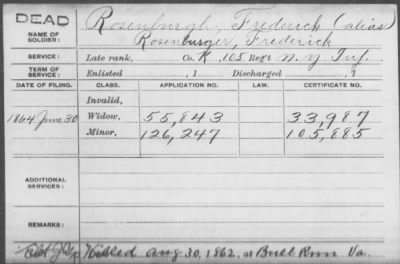 DEAD
NAME OF SOLDIER: Rosenburgh, Frederick (alias)
Rosenburger, Frederick
SERVICE: Late rank, Co. K, 105 Reg't N.Y. Inf.
TERM OF SERVICE: Enlisted , 1 Discharged , 1
DATE OF FILING. CLASS. APPLICATION NO. LAW. CERTIFICATE NO.
Invalid,
1864 June 30 Widow, 55,843 33,987
Minor, 126,247 105,885
ADDITIONAL SERVICES:
REMARKS:
Killed Aug 30, 1862, at Bull Run Va.